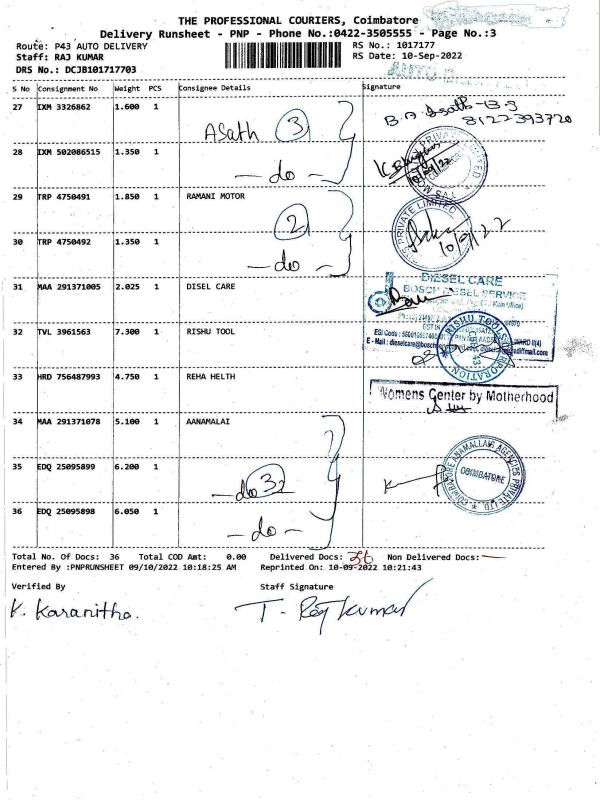 THE PROFESSIONAL COURIERS, Coimbatore
Delivery Runsheet - PNP - Phone No.:0422-3505555 - Page No.:3
Route: P43 AUTO DELIVERY RS No.: 1017177
Staff: RAJ KUMAR RS Date: 10-Sep-2022
DRS No.: DCJB101717703
S No Consignment No Weight PCS Consignee Details Signature
27 IXM 3326862 1.600 1 Asath 3
8122393720
28 IXM 502086515 1.350 1 - do -
29 TRP 4750491 1.850 1 RAMANI MOTOR
2
PRIVATE LIMITED
10/9/22
30 TRP 4750492 1.350 1 - do -
31 MAA 291371005 2.025 1 DISEL CARE
DIESEL CARE
BOSCH DIESEL SERVICE
32 TVL 3961563 7.300 1 RISHU TOOL
RISHU TOOLS CORPORATION
33 HRD 756487993 4.750 1 REHA HELTH
Womens Center by Motherhood
34 MAA 291371078 5.100 1 AANAMALAI
35 EDQ 25095899 6.200 1 - do -
ANAMALLAIS AGENCIES PRIVATE LTD. COIMBATORE
COIMBATORE
36 EDQ 25095898 6.050 1 - do -
Total No. Of Docs: 36 Total COD Amt: 0.00 Delivered Docs: 36 Non Delivered Docs: —
Entered By :PNPRUNSHEET 09/10/2022 10:18:25 AM Reprinted On: 10-09-2022 10:21:43
Verified By Staff Signature
K. Karanitha. T. Raj Kumar